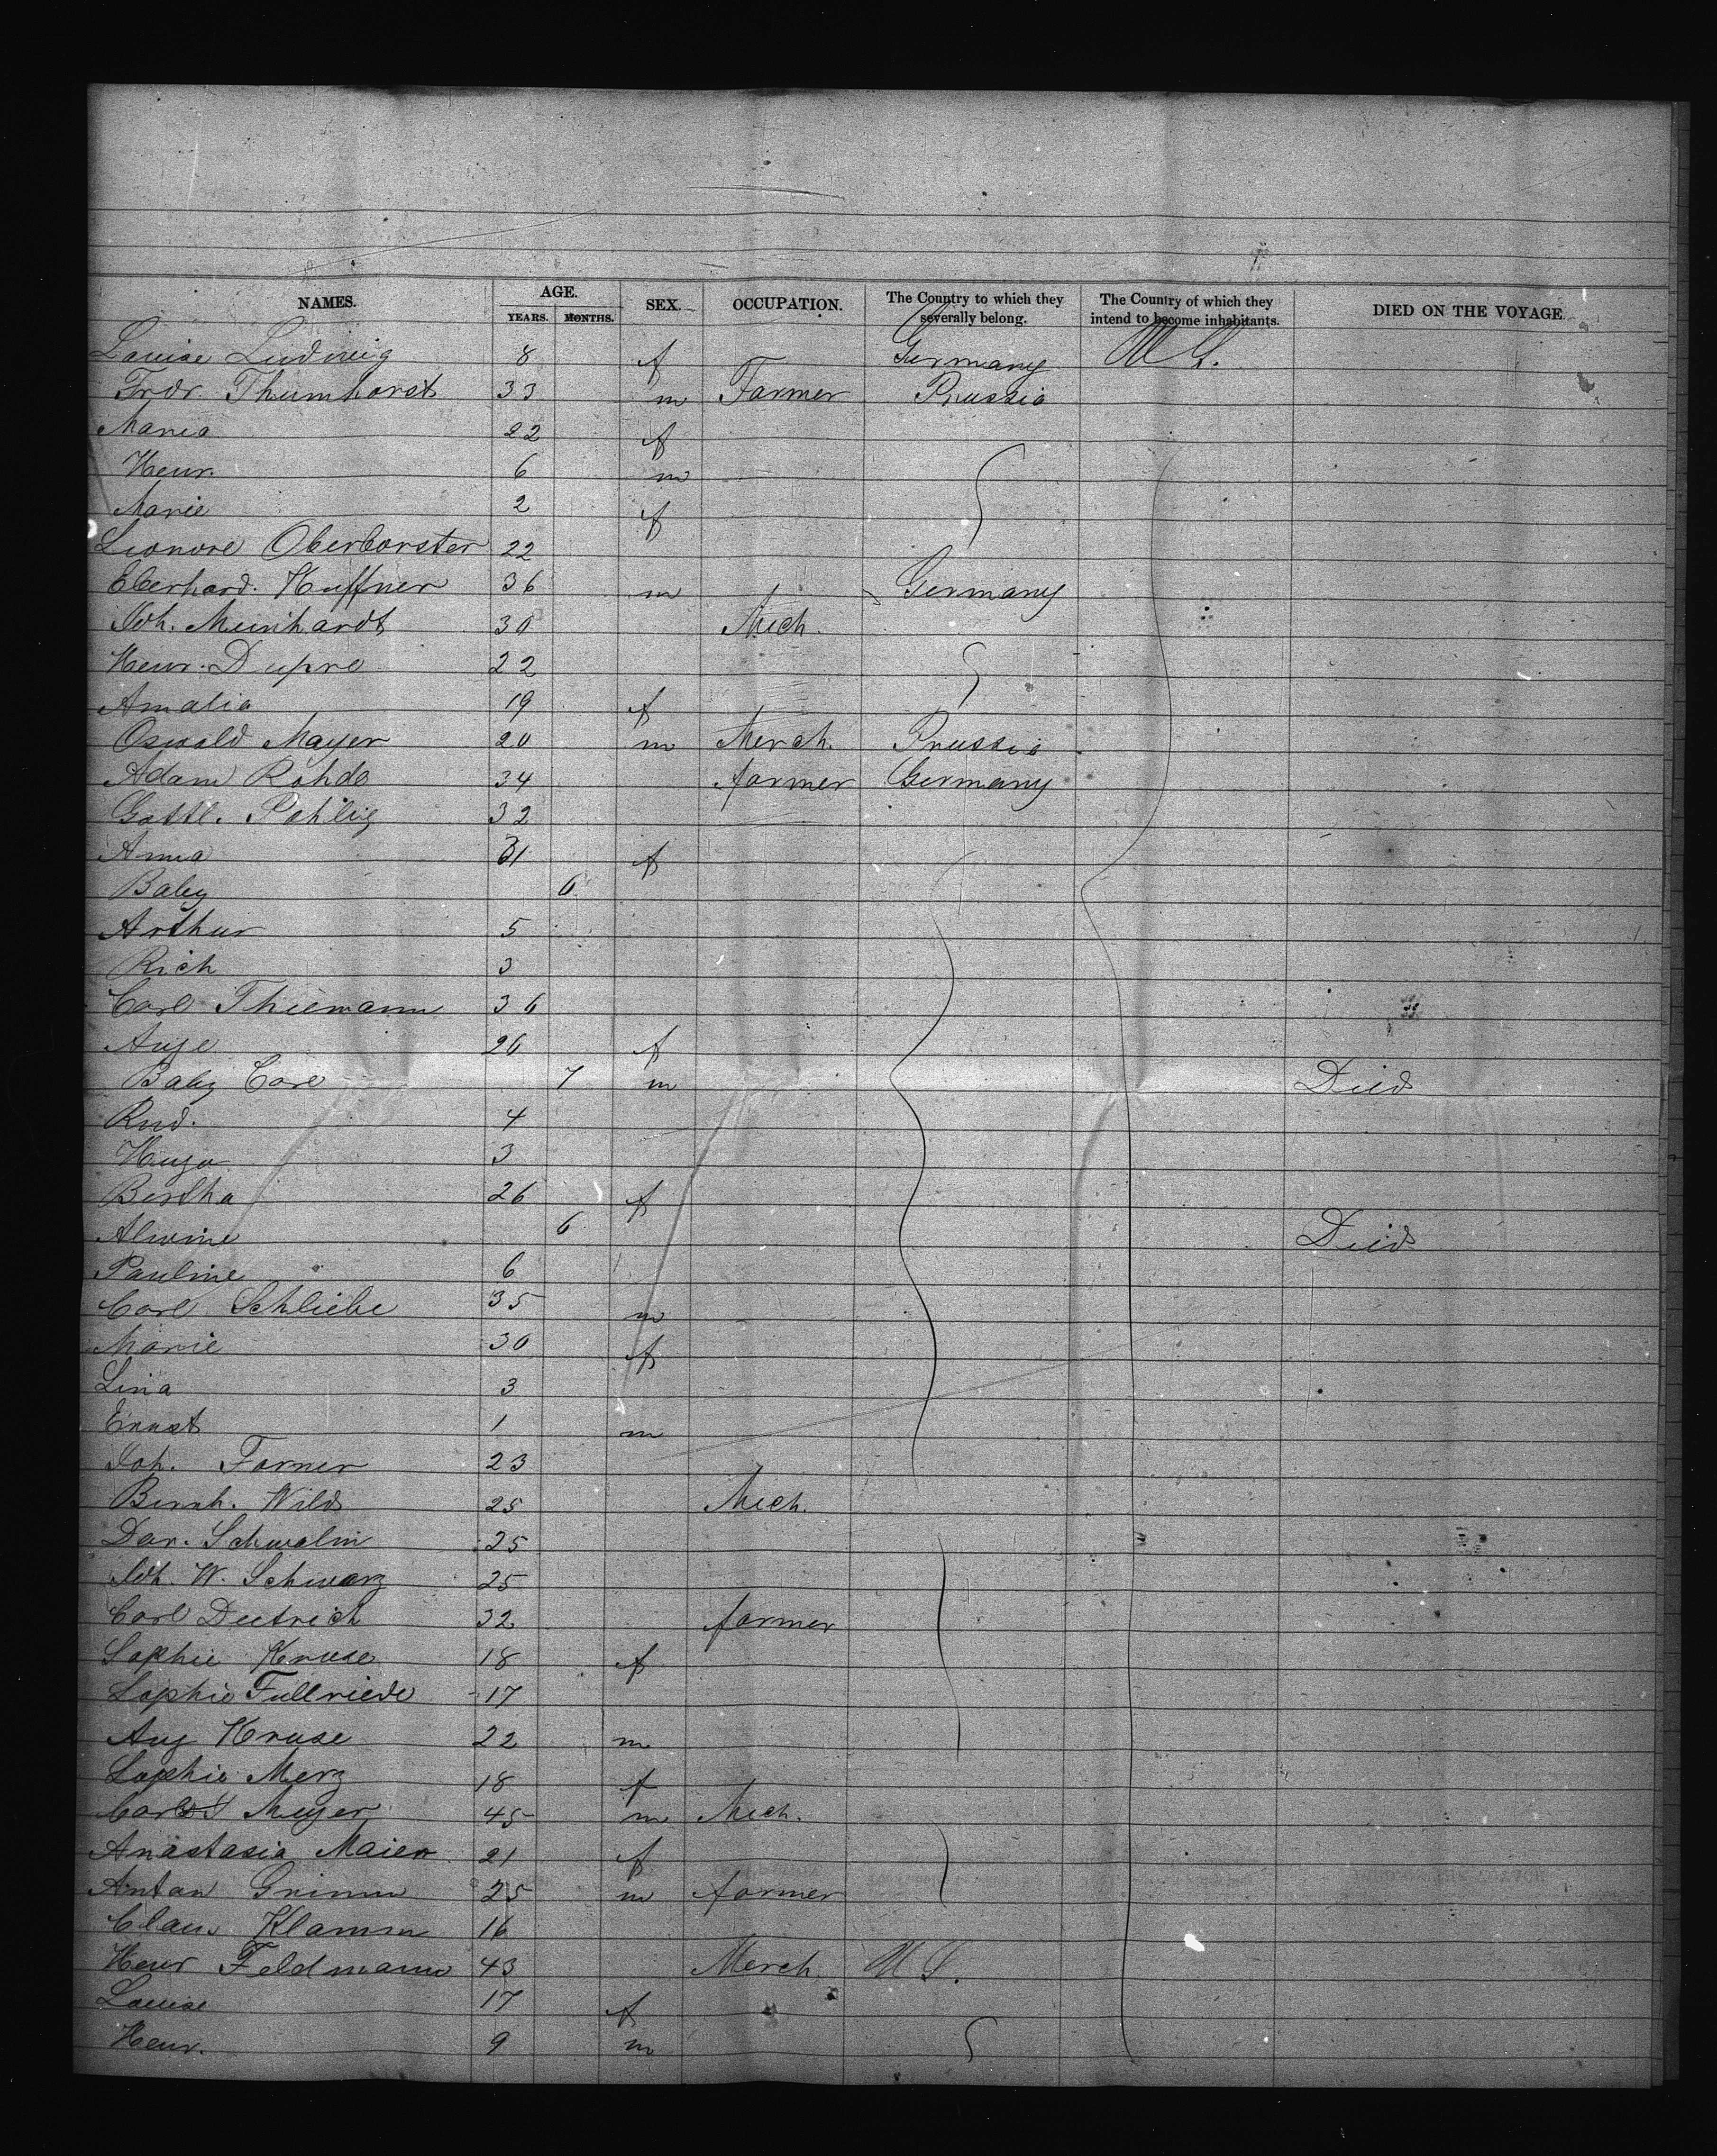 NAMES. AGE. SEX. OCCUPATION. The Country to which they severally belong. The Country of which they intend to become inhabitants. DIED ON THE VOYAGE
YEARS. MONTHS.
Louise Ludwig 8 f Germany U S.
Frdr. Thumhorst 33 m Farmer Prussia
Maria 22 f
Heinr. 6 m
Marie 2 f
Leonore Oberborster 22
Eberhard. Huffner 36 m Germany
Joh. Meinhardt 30 Mech.
Heinr. Dupre 22
Amalia 19 f
Oswald Mayer 20 m Merch. Prussia
Adam Rohde 34 farmer Germany
Gottl. Pohlig 32
Anna 31 f
Baby 6
Arthur 5
Rich 3
Carl Thiemann 36
Auge 26 f
Baby Carl 7 m Died
Rud. 4
Hugo 3
Bertha 26 f
Alwine 6 Died
Pauline 6
Carl Schliebe 35 m
Marie 30 f
Lina 3
Ernst 1 m
Joh. Forner 23
Bernh. Wild 25 Mech.
Dan. Schwalm 25
Joh. W. Schwarz 25
Carl Deetrich 32 farmer
Sophie Kruse 18 f
Sophie Fullriede 17
Aug Kruse 22 m
Sophie Merz 18 f
Carl Meyer 45 m Mech.
Anastasia Maier 21 f
Anton Grimm 25 m farmer
Claus Klamm 16
Heinr Feldmann 43 Merch. U S.
Louise 17 f
Heinr. 9 m